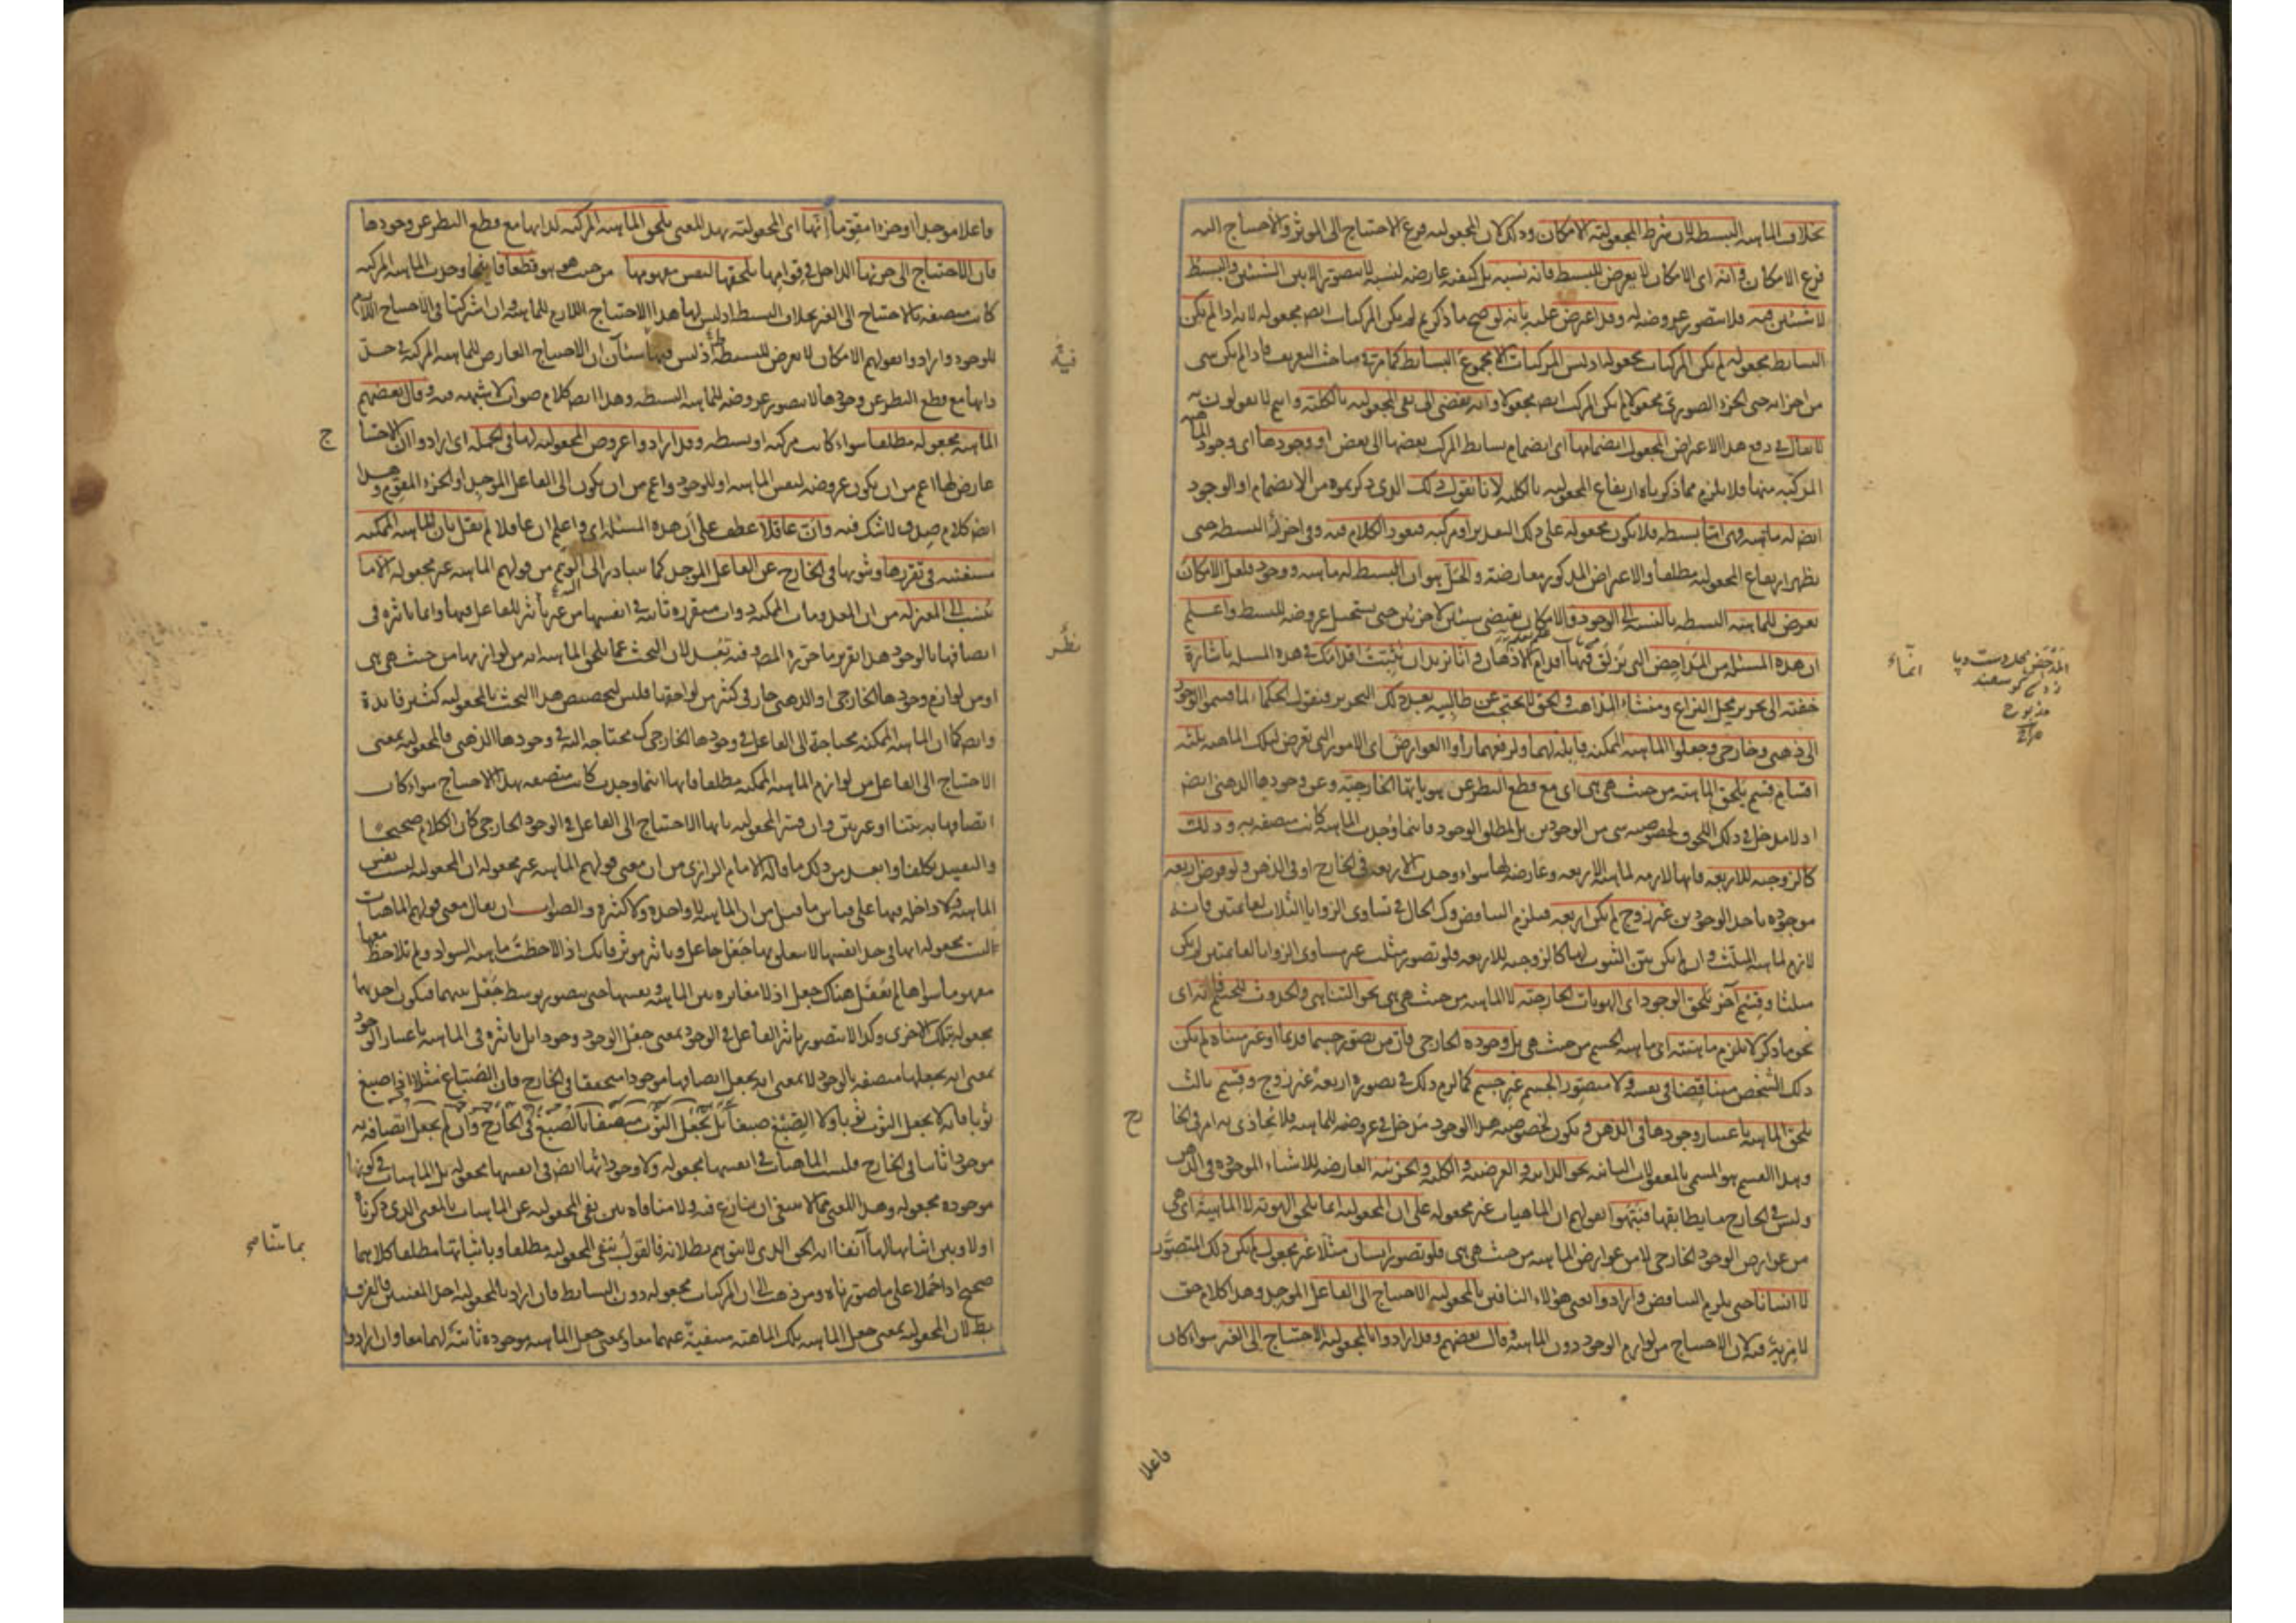 بخلاف الماهية البسيطة لان شرط المجعولية الامكان وذلك لان المجعولية فرع الاحتياج الى المؤثر والاحتياج اليه
فرع الامكان وانه اى الامكان لا يعرض للبسيط فانه نسبة بل كيفية عارضة لنسبة لا يتصور الا بين الشيئين والبسيط
لا شيئين فيه فلا يتصور عروضه له وقد اعترض عليه بانه لو صح ما ذكرتم لم يكن المركبات ايضا مجعولة لانه اذا لم يكن
البسايط مجعولة لم يكن المركبات مجعولة اذ ليس المركبات الا مجموع البسايط كما مر فى مباحث التعريف فاذا لم يكن شى
من اجزائه حتى الجزء الصورى مجعولا لم يكن المركب ايضا مجعولا وانه يفضى الى نفى المجعولية بالكلية وانتم لا تقولون به
لا يقال فى دفع هذا الاعتراض المجعول انضمامها اى انضمام بسايط المركب بعضها الى بعض او وجودها اى وجود الماهية
المركبة منها فلا يلزم مما ذكرناه ارتفاع المجعولية بالكلية لانا نقول ذلك الذى ذكرتموه من الانضمام او الوجود
ايضا له ماهية وهى اما بسيطة فلا يكون مجعولة على ذلك التقدير او مركبة فيعود الكلام فيه وفى اجزائه البسيطة حتى
يظهر ارتفاع المجعولية مطلقا والاعتراض المذكور معارضة والحل هو ان البسيط له ماهية ووجود فلعل الامكان
يعرض للماهية البسيطة بالنسبة الى الوجود فالامكان يقتضى شيئين لا جزئين حتى يستحيل عروضه للبسيط واعلم
ان هذه المسئلة من المداحض التى تزلق فيها اقدام الاذهان وانا نريد ان نثبت اقدامك فى هذه المسئلة باشارة
خفية الى تحرير محل النزاع ومنشاء المذاهب والحق لا يحتجب عن طالبيه بعد ذلك التحرير فنقول الحكماء لما قسموا الوجود
الى ذهنى وخارجى وجعلوا الماهية الممكنة قابلة لهما ولرفعهما راوا العوارض اى الامور التى تعرض لتلك الماهية ثلثة
اقسام قسم يلحق الماهية من حيث هى هى اى مع قطع النظر عن هوياتها الخارجية وعن وجودها الذهنى ايضا
اذ لا مدخل فى ذلك اللحوق لخصوصية شى من الوجودين بل لمطلق الوجود فاينما وجدت الماهية كانت متصفة به وذلك
كالزوجية للاربعة فانها لازمة لماهية الاربعة وعارضة لها سواء وجدت الاربعة فى الخارج او فى الذهن ولو فرض اربعة
موجودة باحد الوجودين غير زوج لم يكن اربعة فيلزم التناقض وكذا الحال فى تساوى الزوايا الثلاث لقائمتين فانه
لازم لماهية المثلث وان لم يكن بين الثبوت لها كالزوجية للاربعة فلو تصور مثلث غير مساوى الزوايا لقائمتين لم يكن
مثلثا وقسم آخر يلحق الوجود اى الهويات الخارجية لا الماهية من حيث هى هى نحو التناهى والحدوث للجسم فانه اى
نحو ما ذكر لا يلزم ماهيته اى ماهية الجسم من حيث هى بل وجوده الخارجى فان من تصور جسما قديما او غير متناه لم يكن
ذلك الشخص متناقضا فى نفسه ولا متصورا لجسم غير جسم كما لزم ذلك فى تصوره اربعة غير زوج وقسم ثالث
يلحق الماهية باعتبار وجودها فى الذهن ويكون لخصوصية هذا الوجود مدخل فى عروضه للماهية فلا يحاذى به امر فى الخا
وهذا القسم هو المسمى بالمعقولات الثانية نحو الذاتية والعرضية والكلية والجزئية العارضة للاشياء الموجودة فى الذهن
وليس فى الخارج ما يطابقها فنبهوا بقولهم ان الماهيات غير مجعولة على ان المجعولية انما تلحق الهوية لا الماهية اى هى
من عوارض الوجود الخارجى لا من عوارض الماهية من حيث هى هى فلو تصور انسان مثلا غير مجعول لم يكن ذلك المتصور
لا انسانا حتى يلزم التناقض وارادوا يعنى هؤلاء النافين بالمجعولية الاحتياج الى الفاعل الموجد وهذا كلام حق
لا مرية فيه لان الاحتياج من لوازم الوجود دون الماهية وقال بعضهم وقد ارادوا بالمجعولية الاحتياج الى الغير سواء كان
فاعلا
فاعلا موجدا او جزءا مقوما انها اى المجعولية بهذا المعنى يلحق الماهية المركبة لذاتها مع قطع النظر عن وجودها
فان الاحتياج الى جزئها الداخل فى قوامها يلحقها لنفس مفهومها من حيث هو هو قطعا فاينما وجدت الماهية المركبة
كانت متصفة بالاحتياج الى الغير بخلاف البسيط اذ ليس لها هذا الاحتياج اللازم للماهية وان اشتركتا فى الاحتياج اللازم
للوجود وارادوا بقولهم الامكان لا يعرض للبسيط اذ ليس فيها شيئان ان الاحتياج العارض للماهية المركبة فى حد
ذاتها مع قطع النظر عن وجودها لا يتصور عروضه للماهية البسيطة وهذا ايضا كلام صواب لا شبهة فيه وقال بعضهم
الماهية مجعولة مطلقا سواء كانت مركبة او بسيطة وقد ارادوا عروض المجعولية لها فى الجملة اى ارادوا ان الاحتيا
عارض لها اعم من ان يكون عروضه لنفس الماهية او للوجود واعم من ان يكون الى الفاعل الموجد او الجزء المقوم وهذا
ايضا كلام صدق لا شك فيه وان عاقلا عطف على ان هذه المسئلة اى واعلم ان عاقلا لم يقل بان الماهية الممكنة
مستغنية فى تقررها وثبوتها فى الخارج عن الفاعل الموجد كما يتبادر الى الوهم من قولهم الماهية غير مجعولة الا ما
ينسب الى المعتزلة من ان المعدومات الممكنة ذوات متقررة ثابتة فى انفسها من غير تأثير للفاعل فيها وانما تاثيره فى
اتصافها بالوجود هذا تقرير ما حرره المصنف وفيه بعد لان البحث عما يلحق الماهية انه من لوازمها من حيث هى هى
او من لوازم وجودها الخارجى او الذهنى جار فى كثير من لواحقها فليس لتخصيص هذا البحث بالمجعولية كثير فايدة
وايضا كما ان الماهية الممكنة محتاجة الى الفاعل فى وجودها الخارجى كذلك محتاجة اليه فى وجودها الذهنى فالمجعولية بمعنى
الاحتياج الى الفاعل من لوازم الماهية الممكنة مطلقا فانها اينما وجدت كانت متصفة بهذا الاحتياج سواء كان
اتصافها به بينا او غير بين وان فسر المجعولية بانها الاحتياج الى الفاعل فى الوجود الخارجى كان الكلام صحيحا
والتقييد تكلفا وابعد من ذلك ما قاله الامام الرازى من ان معنى قولهم الماهية غير مجعولة ان المجعولية ليست نفس
الماهية ولا داخلة فيها على قياس ما قيل من ان الماهية لا واحدة ولا كثيرة والصواب ان يقال معنى قولهم الماهيات
ليست مجعولة انها فى حد انفسها لا يتعلق بها جعل جاعل وتاثير مؤثر فانك اذا لاحظت ماهية السواد ولم تلاحظ معها
مفهوما سواها لم يعقل هناك جعل اذ لا مغايرة بين الماهية ونفسها حتى يتصور توسط جعل بينهما فيكون احديهما
مجعولة تلك الاخرى وكذا لا يتصور تاثير الفاعل فى الوجود بمعنى جعل الوجود وجودا بل تاثيره فى الماهية باعتبار الوجود
بمعنى انه يجعلها متصفة بالوجود لا بمعنى انه يجعل اتصافها موجودا متحققا فى الخارج فان الصباغ مثلا اذا صبغ
ثوبا فانه لا يجعل الثوب ثوبا ولا الصبغ صبغا بل يجعل الثوب متصفا بالصبغ فى الخارج وان لم يجعل اتصافه به
موجودا ثابتا فى الخارج فليست الماهيات فى انفسها مجعولة ولا وجوداتها ايضا فى انفسها مجعولة بل الماهيات فى كونها
موجودة مجعولة وهذا المعنى مما لا ينبغى ان ينازع فيه ولا منافاة بين نفى المجعولية عن الماهيات بالمعنى الذى ذكرناه
اولا وبين اثباتها لها آنفا انه الحق الذى لا يتوهم بطلانه فالقول بنفى المجعولية مطلقا وباثباتها مطلقا كلاهما
صحيح اذا حملا على ما صورناه ومن ذهب الى ان المركبات مجعولة دون البسايط فان اراد بالمجعولية احد المعنيين فالفرق
بطلان المجعولية بمعنى جعل الماهية تلك الماهية منفية عنهما معا وبمعنى جعل الماهية موجودة ثابتة لهما معا وان ارادوا